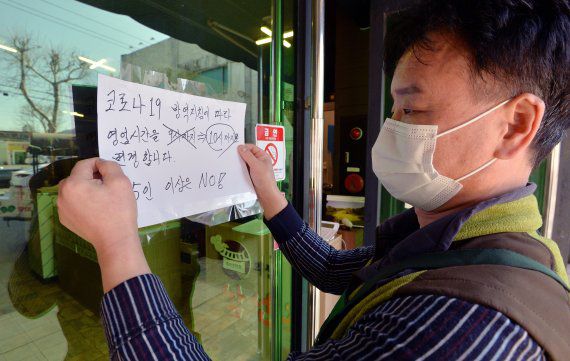 코로나19 방역지침에 따라
영업시간을 9시까지⇒10시까지로
변경합니다.
5인 이상은 NO!
금연